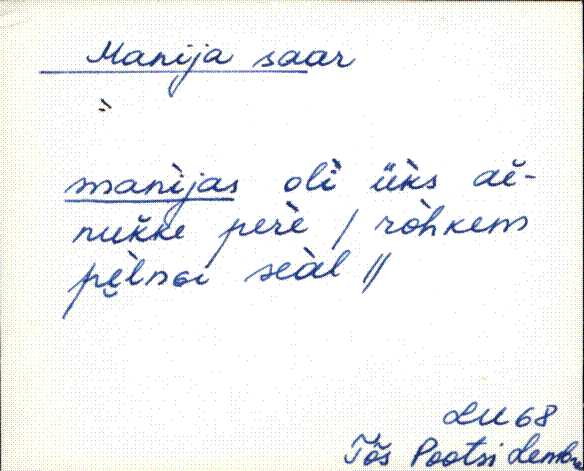 Manija saar
manìjas olì üks aĕ-
nukke perè / ròhkem
seàl //
LU 68
Tõs Pootsi